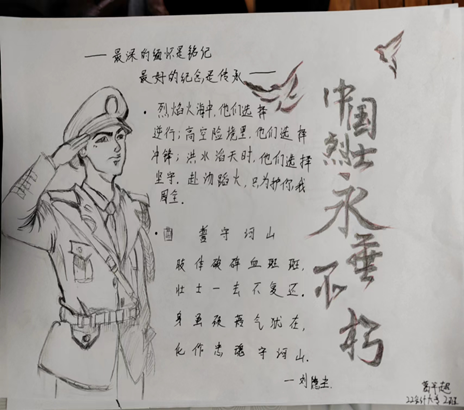 ——最深的缅怀是铭记
最好的纪念是传承——
· 烈焰火海中,他们选择
逆行;高空险境里,他们选择
冲锋;洪水滔天时,他们选择
坚守。赴汤蹈火,只为护你我
周全。
誓守河山
肢体破碎血斑斑,
壮士一去不复还。
身虽殒 气犹在,
化作忠魂守河山。
—刘
中国
烈士
永
垂
不
朽
22会计大专2班